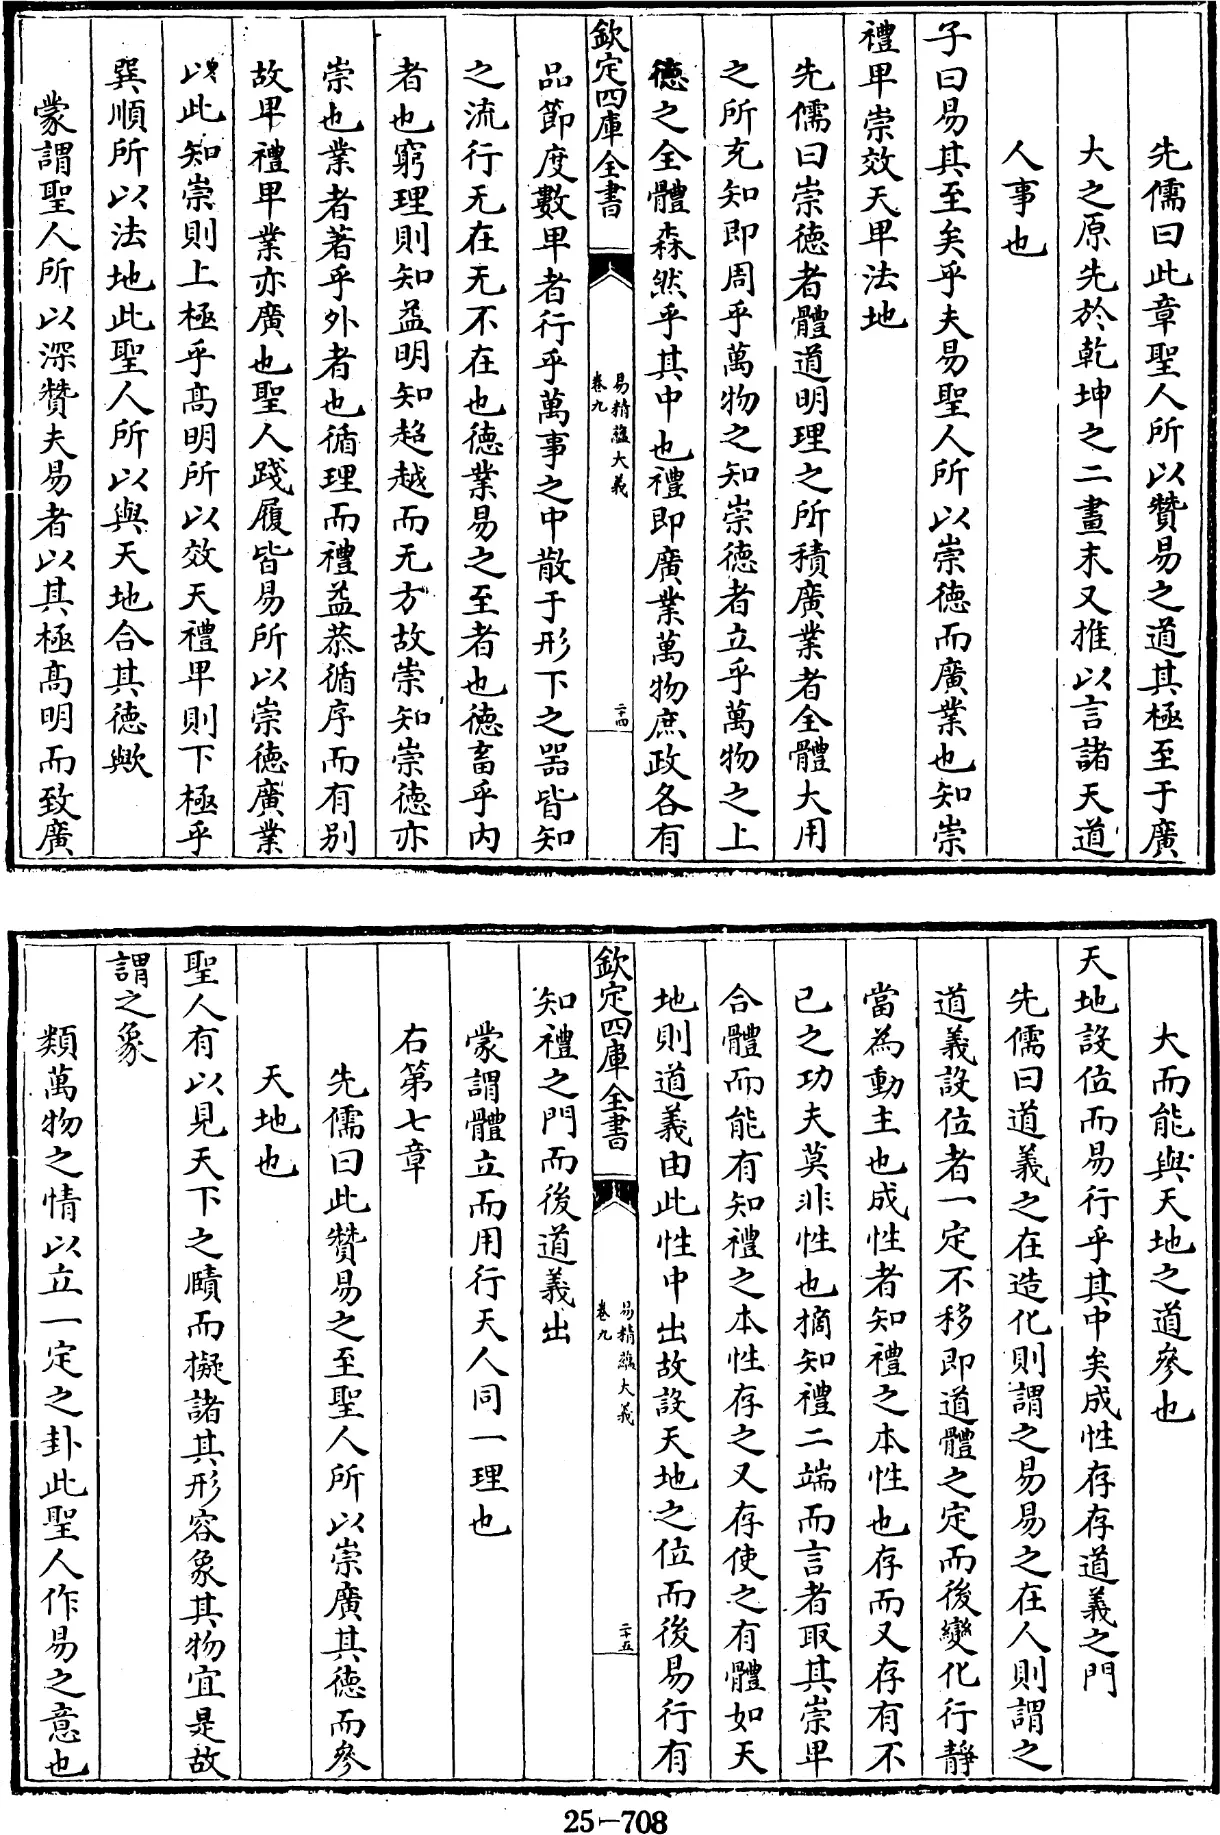 先儒曰此章聖人所以贊易之道其極至于廣
大之原先於乾坤之二畫末又推以言諸天道
人事也
子曰易其至矣乎夫易聖人所以崇德而廣業也知崇
禮卑崇效天卑法地
先儒曰崇德者體道明理之所積廣業者全體大用
之所充知即周乎萬物之知崇德者立乎萬物之上
德之全體森然乎其中也禮即廣業萬物庶政各有
欽定四庫全書
易精蘊大義
卷九
二十四
品節度數卑者行乎萬事之中散于形下之器皆知
之流行无在无不在也德業易之至者也德畜乎内
者也窮理則知益明知超越而无方故崇知崇德亦
崇也業者著乎外者也循理而禮益恭循序而有别
故卑禮卑業亦廣也聖人踐履皆易所以崇德廣業
以此知崇則上極乎髙明所以效天禮卑則下極乎
巽順所以法地此聖人所以與天地合其德歟
蒙謂聖人所以深贊夫易者以其極髙明而致廣
大而能與天地之道參也
天地設位而易行乎其中矣成性存存道義之門
先儒曰道義之在造化則謂之易易之在人則謂之
道義設位者一定不移即道體之定而後變化行靜
當為動主也成性者知禮之本性也存而又存有不
已之功夫莫非性也摘知禮二端而言者取其崇卑
合體而能有知禮之本性存之又存使之有體如天
地則道義由此性中出故設天地之位而後易行有
欽定四庫全書
易精蘊大義
卷九
二十五
知禮之門而後道義出
蒙謂體立而用行天人同一理也
右第七章
先儒曰此贊易之至聖人所以崇廣其德而參
天地也
聖人有以見天下之賾而擬諸其形容象其物宜是故
謂之象
類萬物之情以立一定之卦此聖人作易之意也
25-708